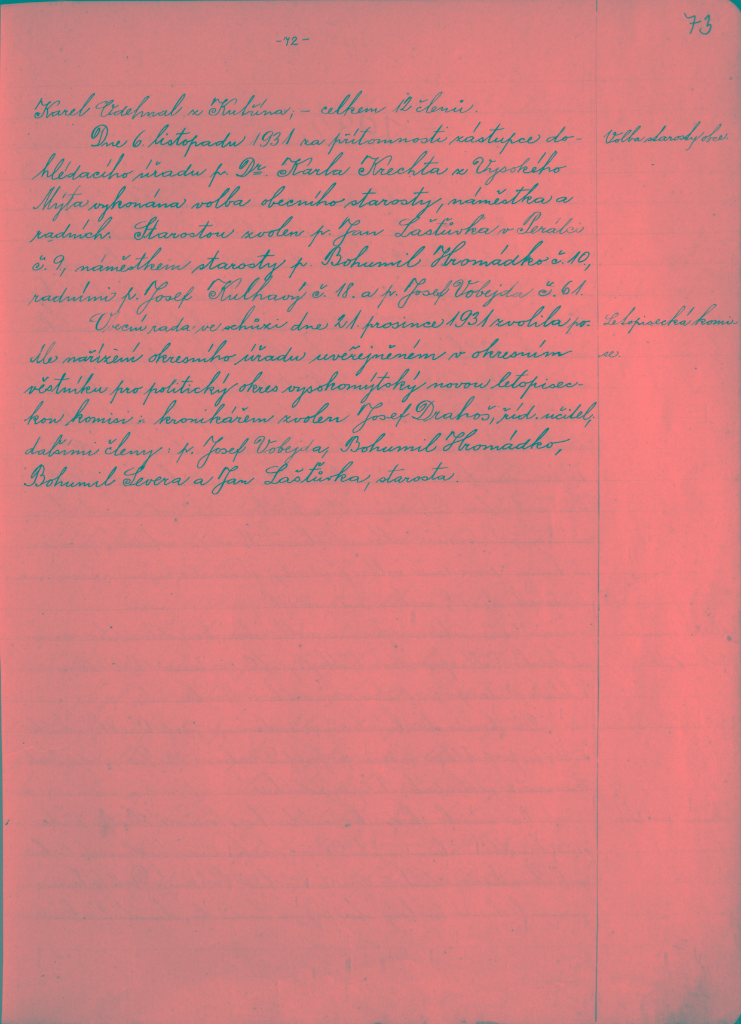 73
-72-
Karel Odehnal z Kutřína, - celkem 12 členů.
Dne 6. listopadu 1931 za přítomnosti zástupce do-
Volba starosty obce.
hlédacího úřadu p. Dr. Karla Krechta z Vysokého
Mýta vykonána volba obecního starosty, náměstka a
radních. Starostou zvolen p. Jan Laštůvka v Perálci
č. 9, náměstkem starosty p. Bohumil Hromádko č. 10,
radními p. Josef Kulhavý č. 18. a p. Josef Vobejda č. 61.
rada ve schůzi dne 21. prosince 1931 zvolila po-
Letopisecká komi
dle nařízení okresního úřadu uveřejněném v okresním
se.
věstníku pro politický okres vysokomýtský novou letopisec-
kou komisi a kronikářem zvolen Josef Drahoš, říd. učitel,
dalšími členy: p. Josef Vobejda, Bohumil Hromádko,
Bohumil Severa a Jan Laštůvka, starosta.